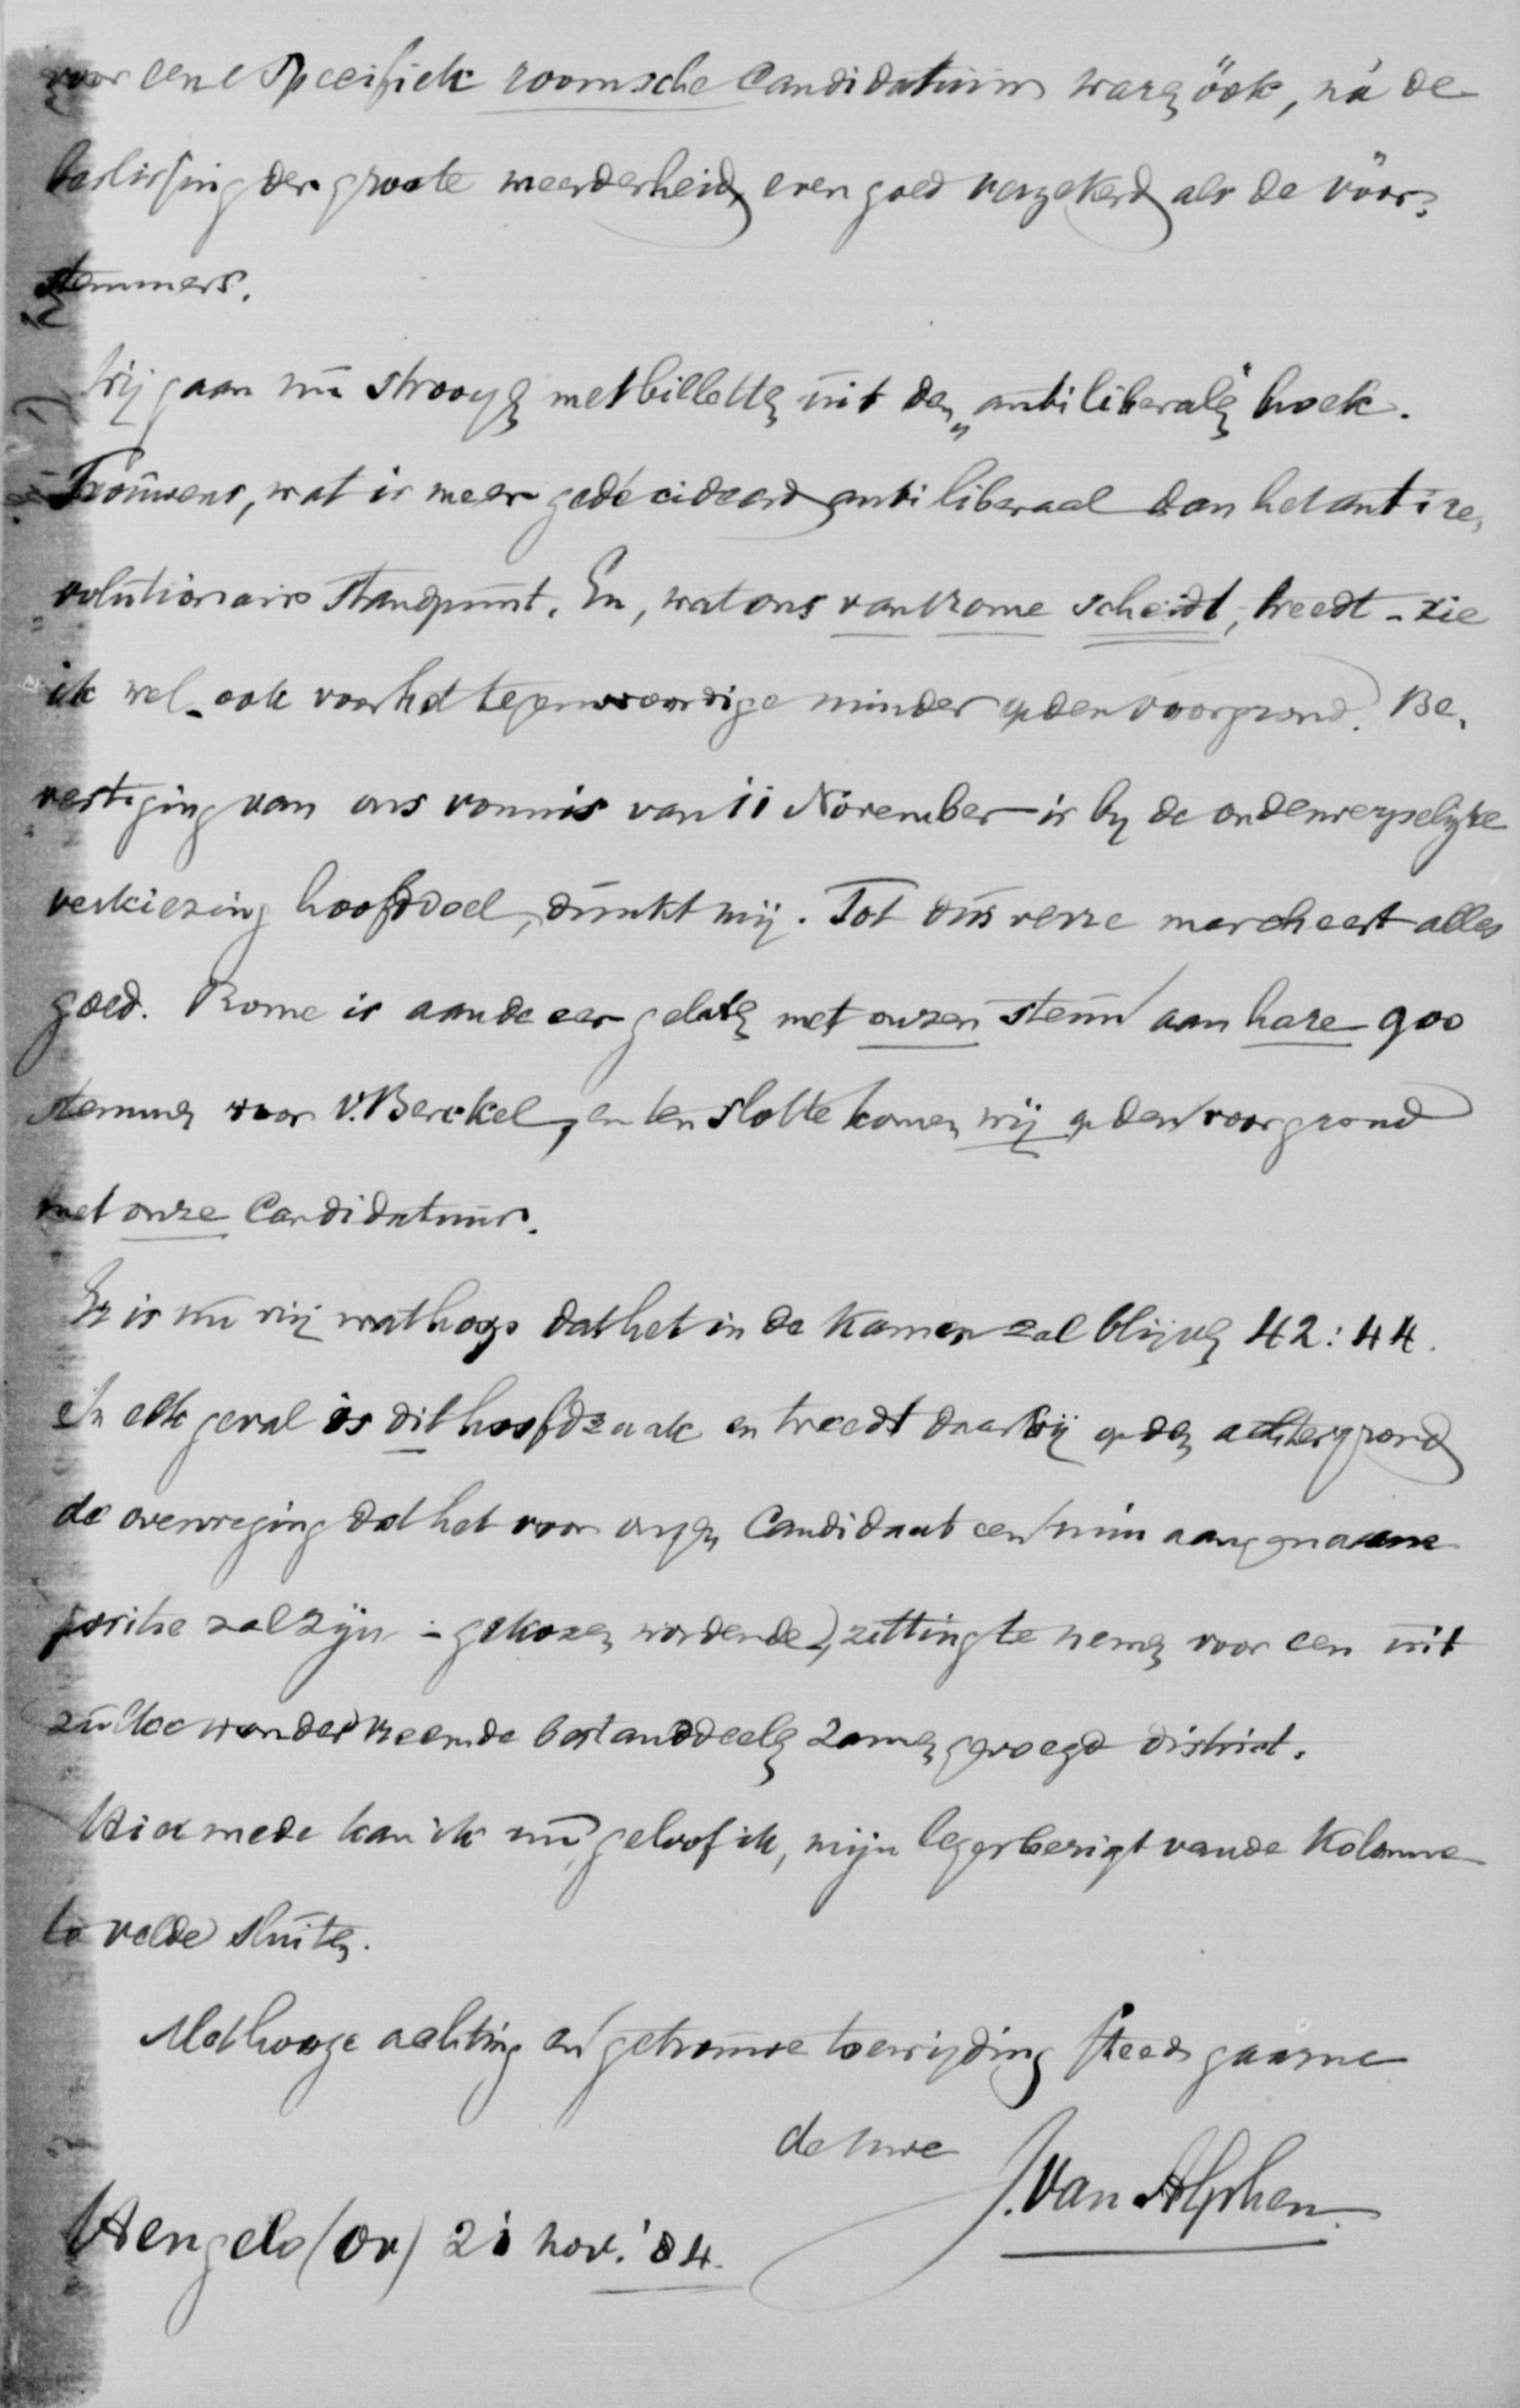 voor eene specifiek roomsche candidatuur waren óók, ná de
beslissing der groote meerderheid, even goed verzekerd als de vóór-
stemmers.
Wij gaan nu strooyen met billetten uit den "antiliberalen" hoek.
Trouwens, wat is meer gedécideerd anti liberaal dan het antire-
volutionair standpunt. En, wat ons van Rome scheidt, treedt - zie
ik wel - ook voor het tegenwoordige minder op den voorgrond. Be-
vestiging van ons vonnis van 11 November is by de onderwerpelijke
verkiezing hoofddoel, dunkt mij. Tot dus verre marcheert alles
goed. Rome is aan de eer gelaten met onzen steun aan hare 900
stemmen voor v. Berckel, en ten slotte komen wij op den voorgrond
met onze candidatuur.
Er is nu vrij wat hoop dat het in de Kamer zal blijven 42:44.
In elk geval is dit hoofdzaak en treedt daarbij op den achtergrond
de overweging dat het voor onzen Candidaat een min aangename
positie zal zijn - gekozen wordende, zitting te nemen voor een uit
zulke wonder vreemde bestanddeelen zamengevoegd district.
Hiermede kan ik nu, geloof ik, mijn legerberigt van de Kolonne
te velde sluiten.
Met hooge achting en getrouwe toewijding steeds gaarne
de uwe
J. van Alphen
Hengelo (Ov) 21 nov. '84.